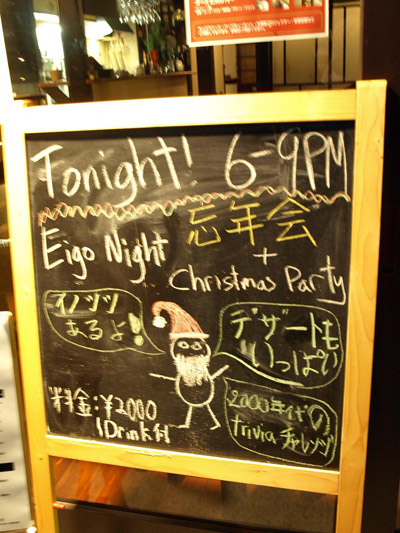 Tonight! 6-9PM
Eigo Night
忘年会
+
Christmas Party
イノシシ
あるよ!
デザートも
いっぱい
料金:¥2000
1Drink付
2000年代の
trivia チャレンジ